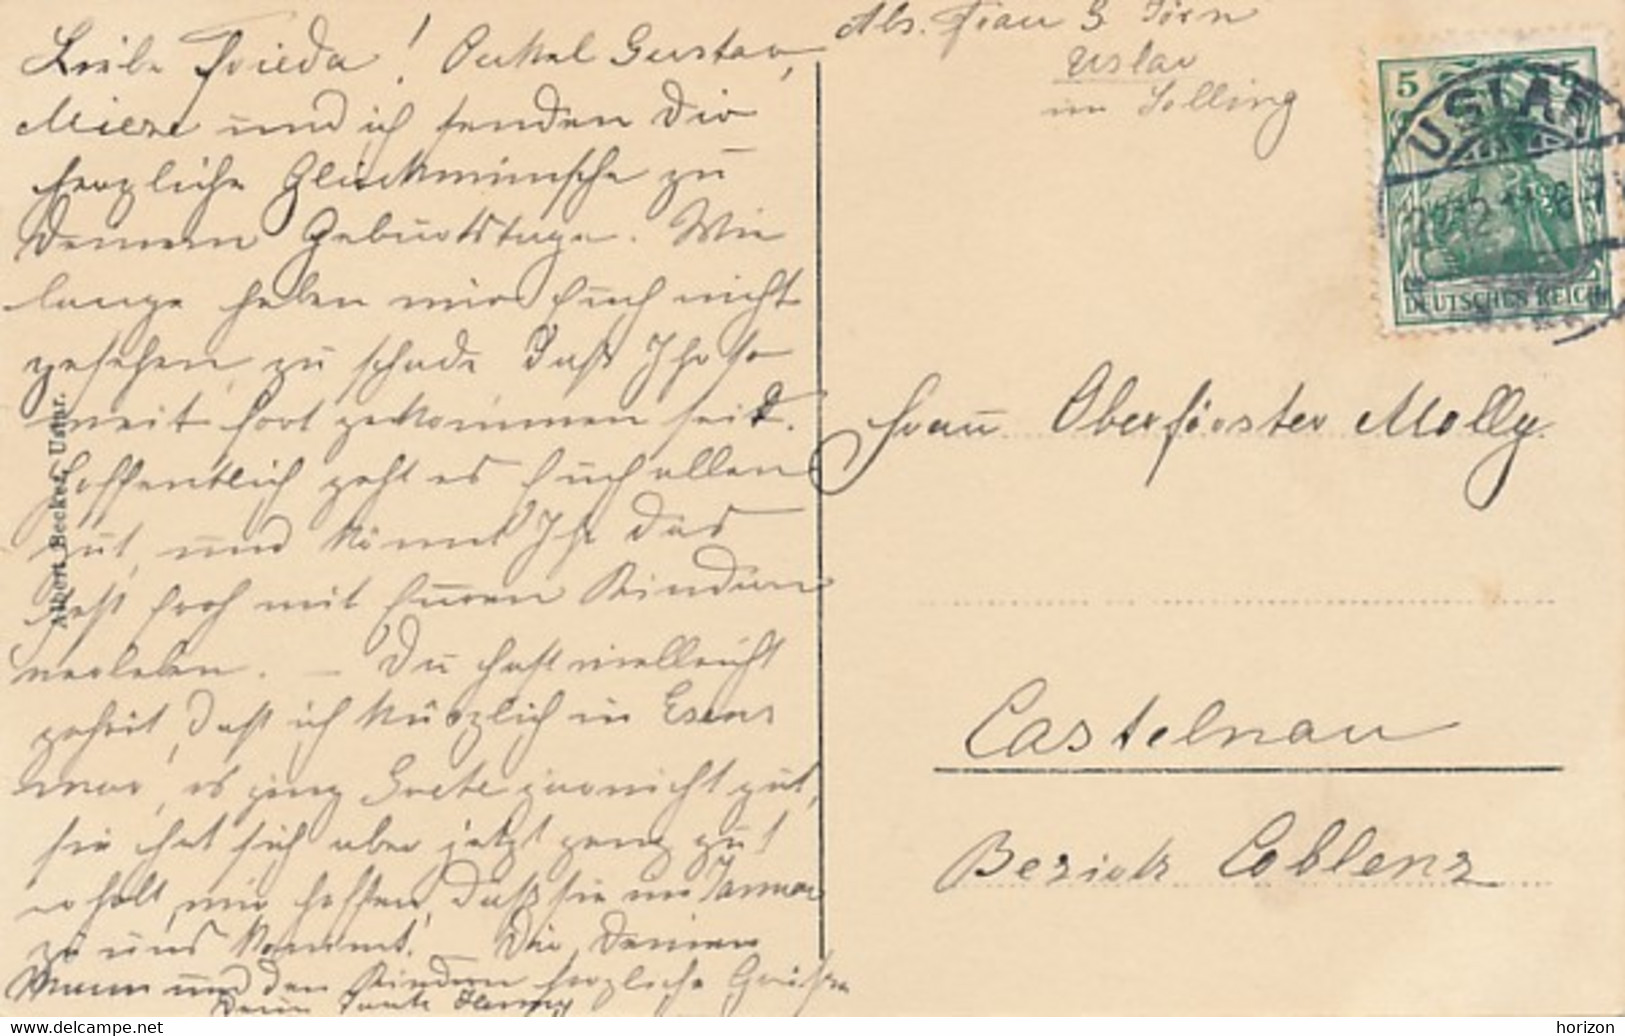 Liebe Frieda! Onkel Gustav,
Mieze und ich senden Dir
herzliche Glückwünsche zu
Deinem Geburtstage. Wie
lange haben wir Euch nicht
gesehen, zu schade, daß Ihr so
weit fort gekommen seid.
Hoffentlich geht es Euch allen
gut, und könnt Ihr das
Fest froh mit Euren Kindern
verleben. – Du hast vielleicht
gehört, daß ich kürzlich in Esens
war, es ging Grete garnicht gut,
sie hat sich aber jetzt ganz gut
erholt, wir hoffen, daß sie im Januar
zu uns kommt. – Dir, Deinem
Mann und den Kindern herzliche Grüße
Deine Tante
Albert Becker, Uslar.
Abs. Frau G
Uslar
im Solling
5 5
USLAR
22.12.11
DEUTSCHES REICH
Frau Oberförster Molly.
Castelnau
Bezirk Coblenz
horizon
www.delcampe.net